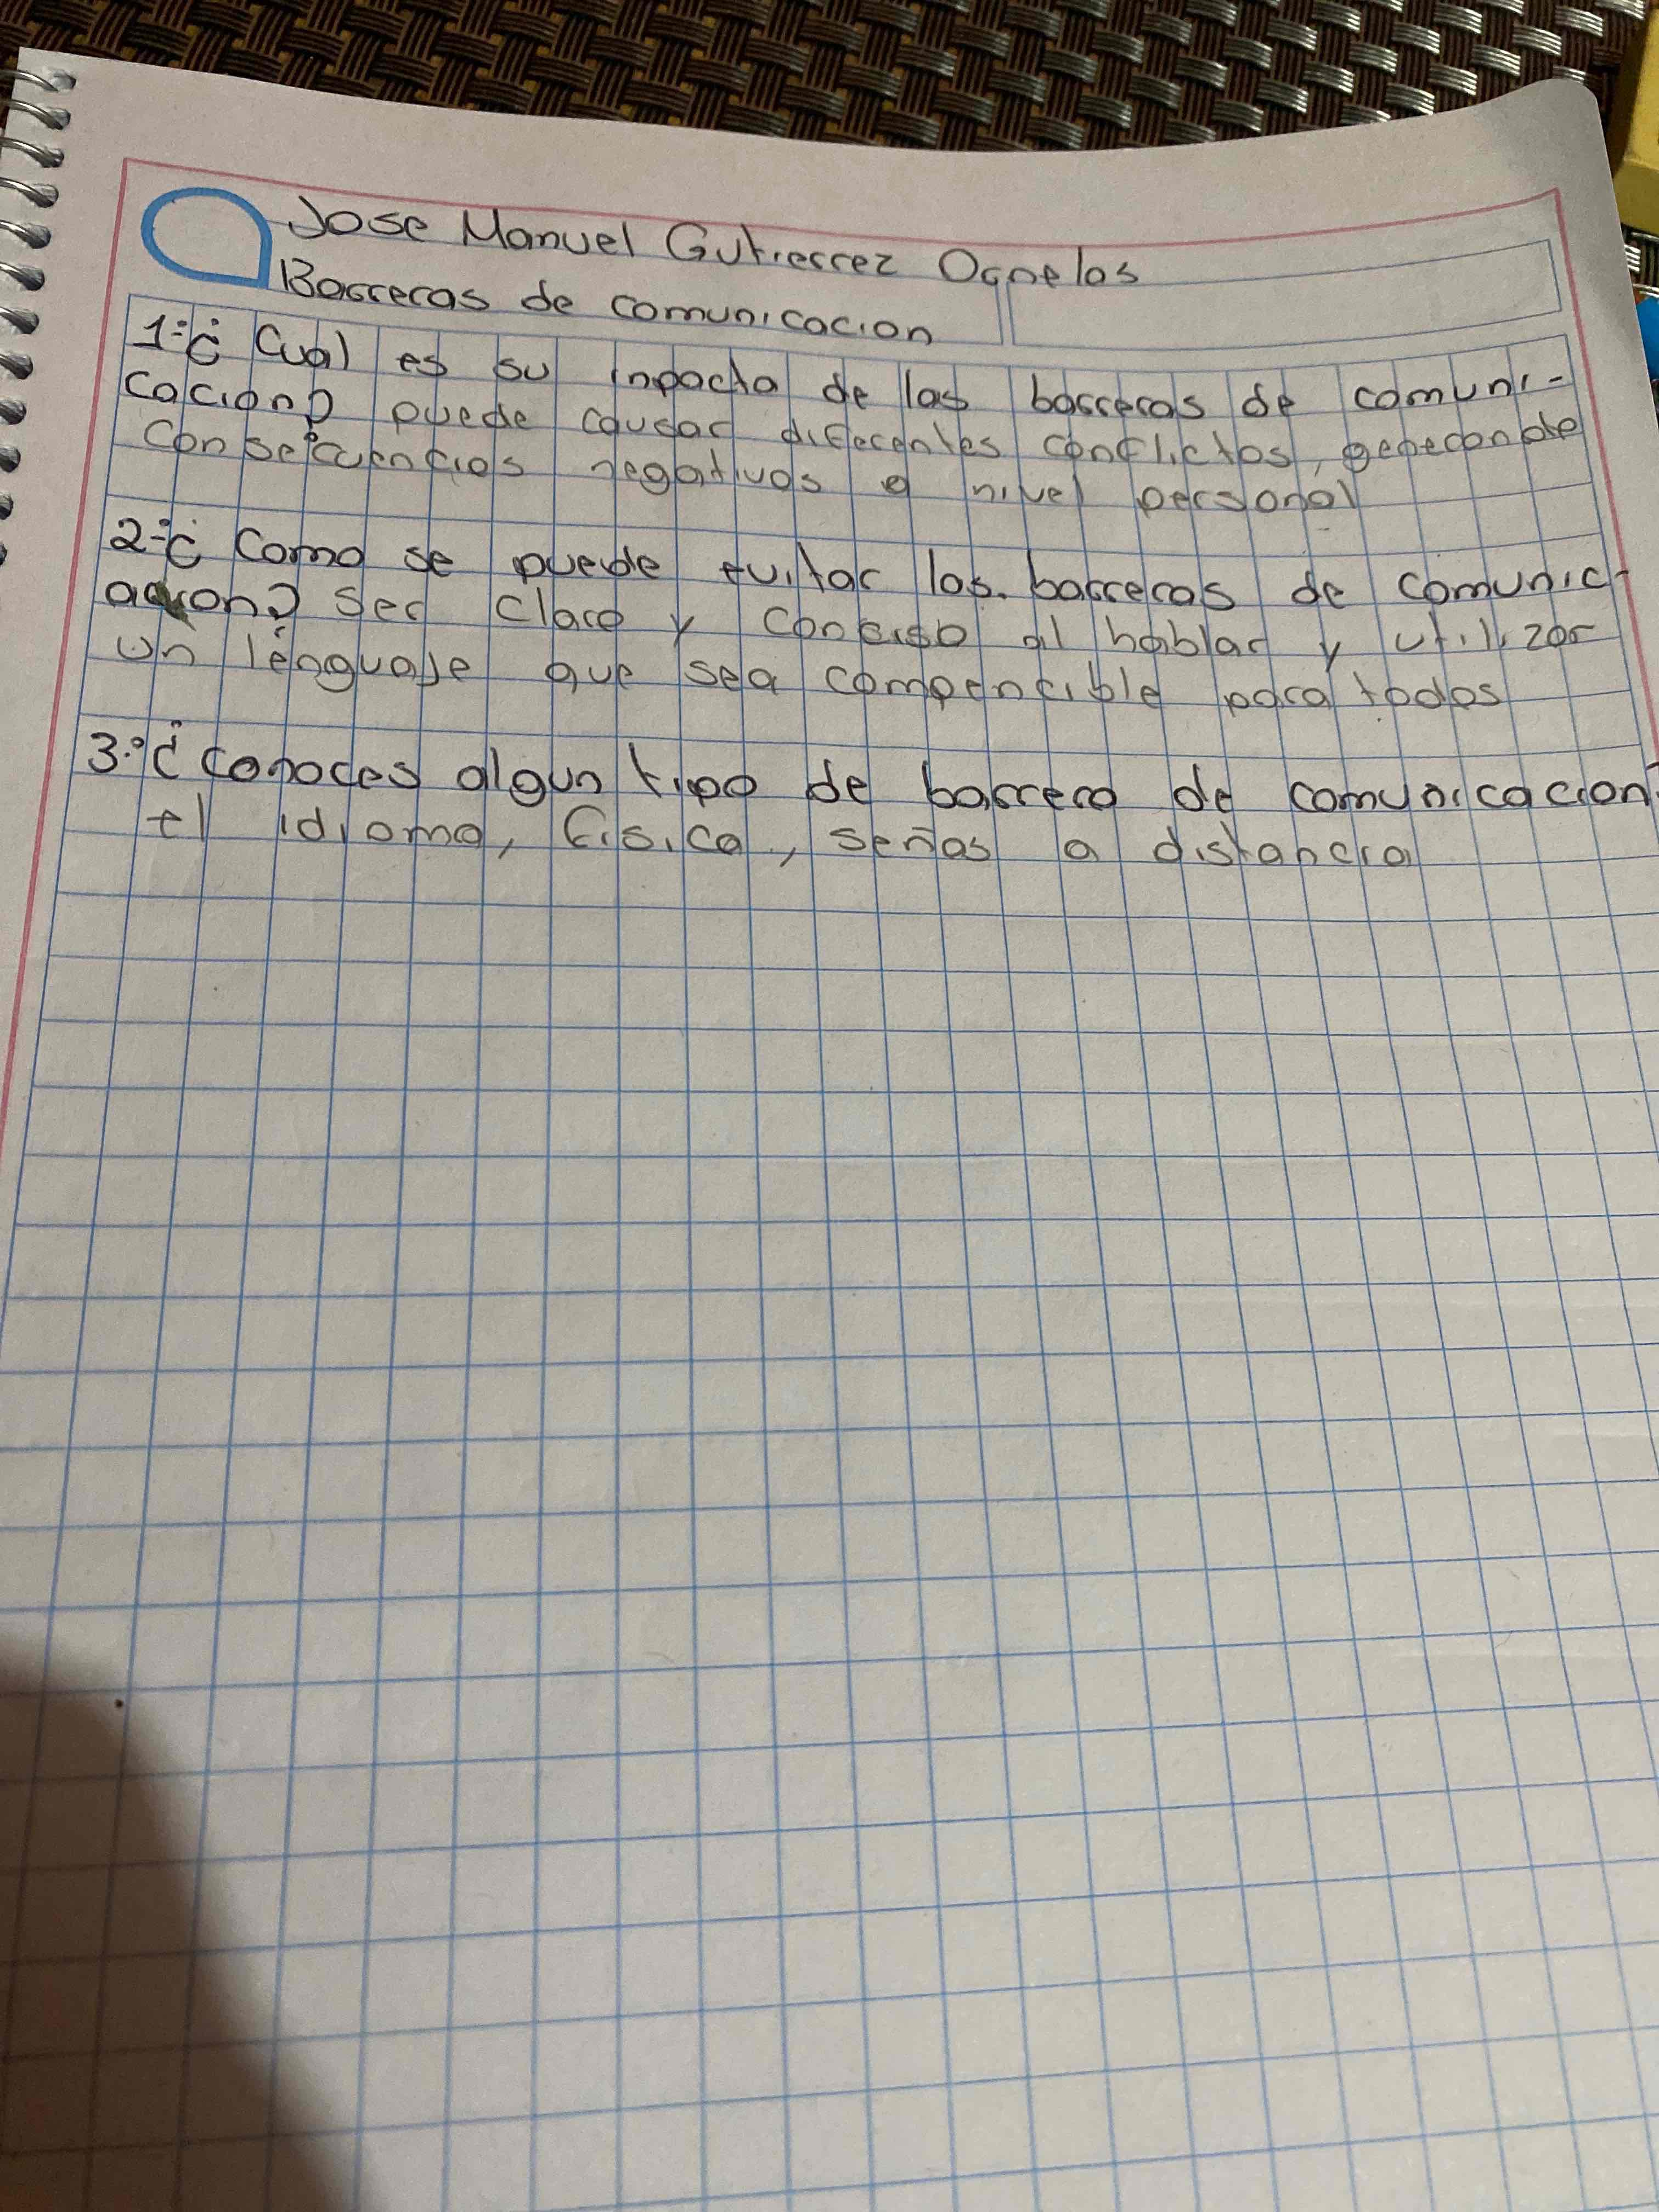 Jose Manuel Gutierrez Ornelas
Barreras de comunicacion
1-¿ Cual es su inpacto de las barreras de comuni-
cacion? puede causar diferentes conflictos, generando
consecuencias negativas a nivel personal
2-¿ Como se puede evitar las barreras de comunic-
acion? Ser claro y conciso al hablar y utilizar
un lenguaje que sea compencible para todos
3-¿ Conoces algun tipo de barrera de comunicacion?
el idioma, fisica, señas a distancia